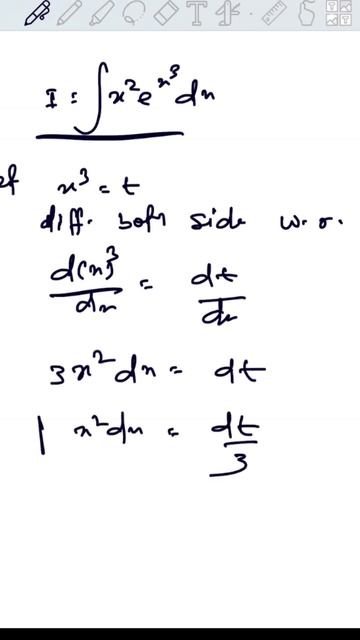 I = ∫x²e^x³dx
let x³ = t
diff. both side w.r.
d(x)³/dx = dt/dx
3x²dx = dt
x²dx = dt/3